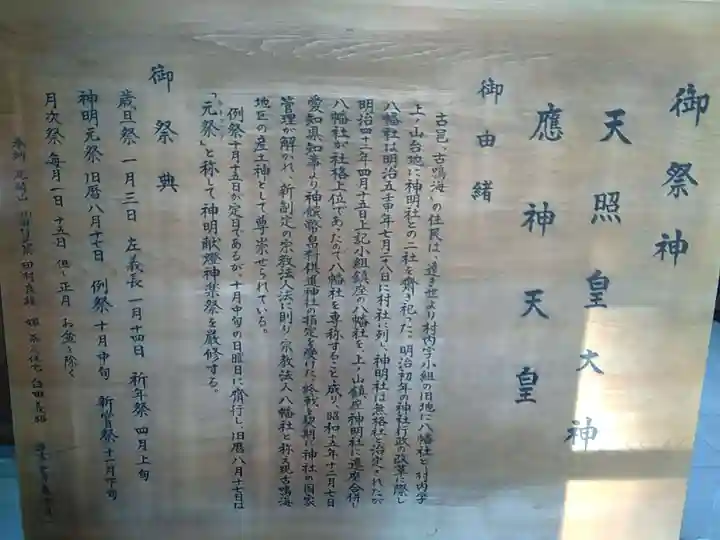 御祭神
天照皇大神
應神天皇
御由緒
古邑、古鳴海の住民は、遠き世より村内字小組の旧地に八幡社と村内字
上ノ山台地に神明社との二社を齋き祀った。明治初年の神社行政の改革に際し
八幡社は明治五壬申年七月二十八日に村社に列し、神明社は無格社と治定されたが
明治四十二年四月十五日上記小組鎮座の八幡社を、上ノ山鎮座神明社に遷座合併し
八幡社が社格上位であたので八幡社を専称することと成り、昭和十五年十二月七日
愛知県知事より神饌幣帛料供進神社の指定を受けた。終戦を契期に神社の国家
管理が解かれ、新制定の宗教法人法に則り宗教法人八幡社と称え現古鳴海
地区の産土神として尊崇せられている。
例祭十月十五日が定日であるが、十月中旬の日曜日に齋行し、旧暦八月十七日は
「元祭」と称して神明献燈神楽祭を厳修する。
御祭典
歳旦祭 一月三日 左義長 一月十四日 祈年祭 四月上旬
神明元祭 旧暦八月十七日 例祭 十月中旬 新嘗祭 十一月下旬
月次祭 毎月一日 十五日 但し正月 お盆を除く